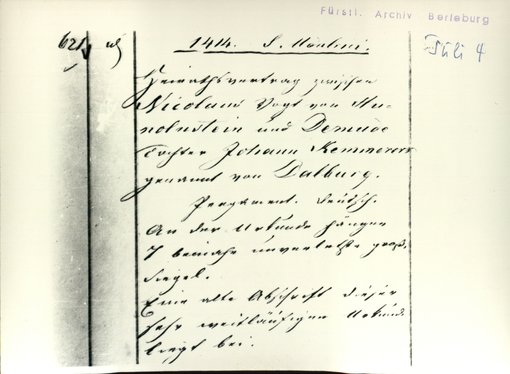 Fürstl. Archiv Berleburg
621
Juli 4
1414. S. Udalrici.
Heirathsvertrag zwischen
Nicolaus Vogt von Hu-
nolnstein und Demude
Tochter Johann Kemmerers
genannt von Dalburg.
Pergament. Deutsch.
An der Urkunde hängen
7 beinahe unverletzte große
Siegel.
Eine alte Abschrift dieser
sehr weitläufigen Urkunde
liegt bei.